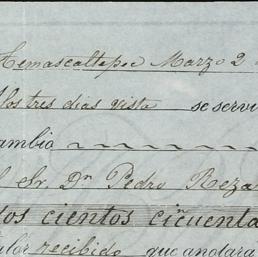 Temascaltepec Marzo 2
los tres dias vista se servi
ambio
Sr. Dn Pedro Reza
tos cientos cincuenta
alor recibido que anotara